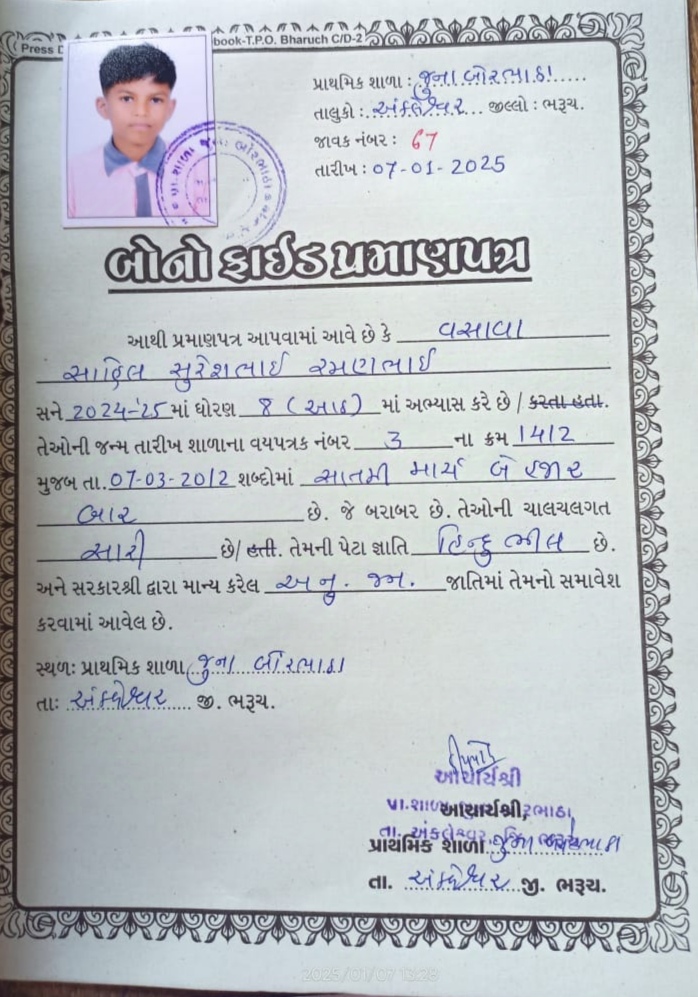 Press D
book-T.P.O. Bharuch C/D-2
પ્રાથમિક શાળા : જુના બોરભાઠા
તાલુકો : અંકલેશ્વર જીલ્લો : ભરૂચ.
જાવક નંબર : 67
તારીખ : 07-01-2025
બોનો ફાઈડ પ્રમાણપત્ર
આથી પ્રમાણપત્ર આપવામાં આવે છે કે વસાવા
સાહિલ સુરેશભાઈ રમણભાઈ
સને 2024-'25 માં ધોરણ 8 (આઠ) માં અભ્યાસ કરે છે / કરતા હતા.
તેઓની જન્મ તારીખ શાળાના વયપત્રક નંબર 3 ના ક્રમ 1412
મુજબ તા. 07-03-2012 શબ્દોમાં સાતમી માર્ચ બે હજાર
બાર છે. જે બરાબર છે. તેઓની ચાલચલગત
સારી છે/ હતી. તેમની પેટા જ્ઞાતિ હિન્દુ ભીલ છે.
અને સરકારશ્રી દ્વારા માન્ય કરેલ અનુ. જન. જાતિમાં તેમનો સમાવેશ
કરવામાં આવેલ છે.
સ્થળ: પ્રાથમિક શાળા જુના બોરભાઠા
તા: અંકલેશ્વર જી. ભરૂચ.
આચાર્યશ્રી
પ્રા.શાળા
આચાર્યશ્રી,
તા. અંકલેશ્વર,
પ્રાથમિક શાળા જુના બોરભાઠા
તા. અંકલેશ્વર જી. ભરૂચ.
2025/01/07 13:28